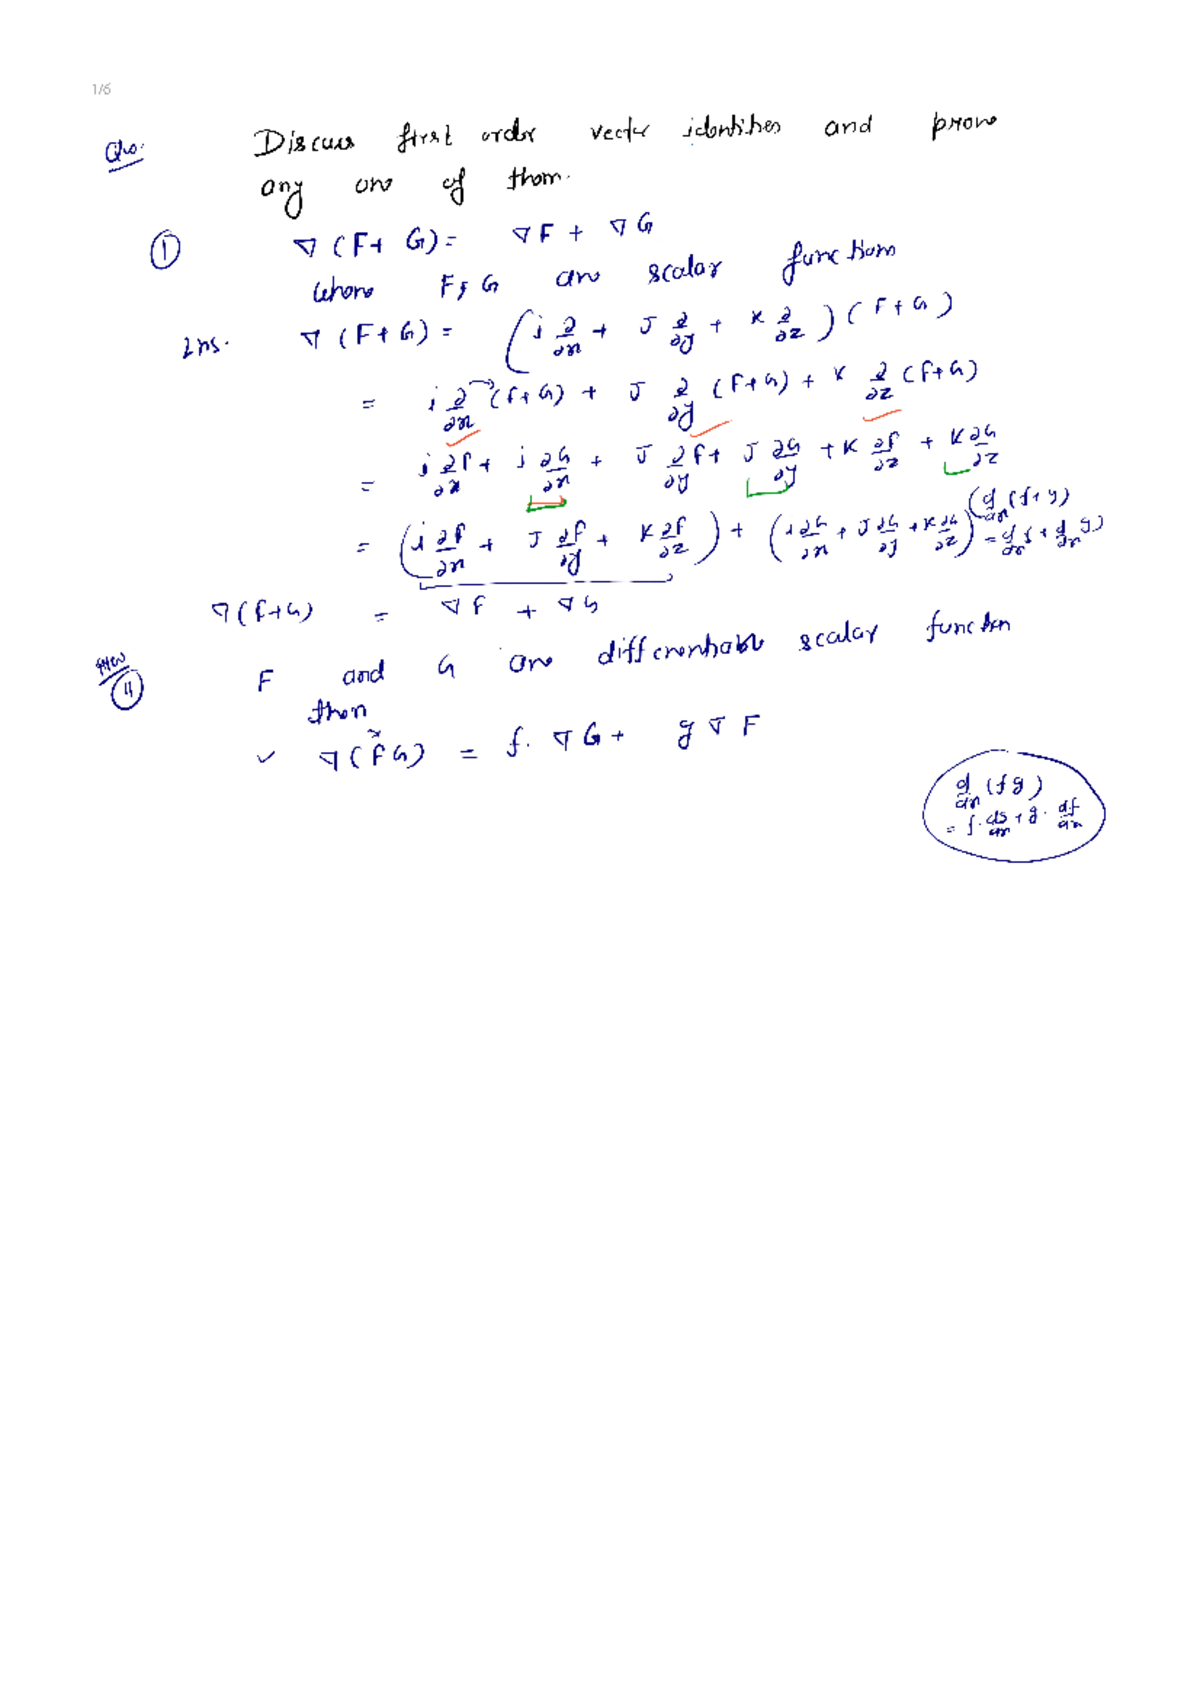 1/6
Que. Discuss first order vector identities and prove
any one of them.
① ∇ (F+ G) = ∇ F + ∇ G
where F, G are scalar functions
Ans. ∇ (F+ G) = ( i ∂/∂x + J ∂/∂y + K ∂/∂z ) ( F + G )
= i ∂/∂x (F+G) + J ∂/∂y (F+G) + K ∂/∂z (F+G)
= i ∂F/∂x + i ∂G/∂x + J ∂F/∂y + J ∂G/∂y + K ∂F/∂z + K ∂G/∂z
= ( i ∂F/∂x + J ∂F/∂y + K ∂F/∂z ) + ( i ∂G/∂x + J ∂G/∂y + K ∂G/∂z )
( d/dx (f+g)
= d/dx f + d/dx g )
∇ (F+G) = ∇ F + ∇ G
F and G are differentiable scalar function
then
✓ ∇ (F G) = f. ∇ G + g ∇ F
d/dx (f g)
= f. dg/dx + g. df/dx